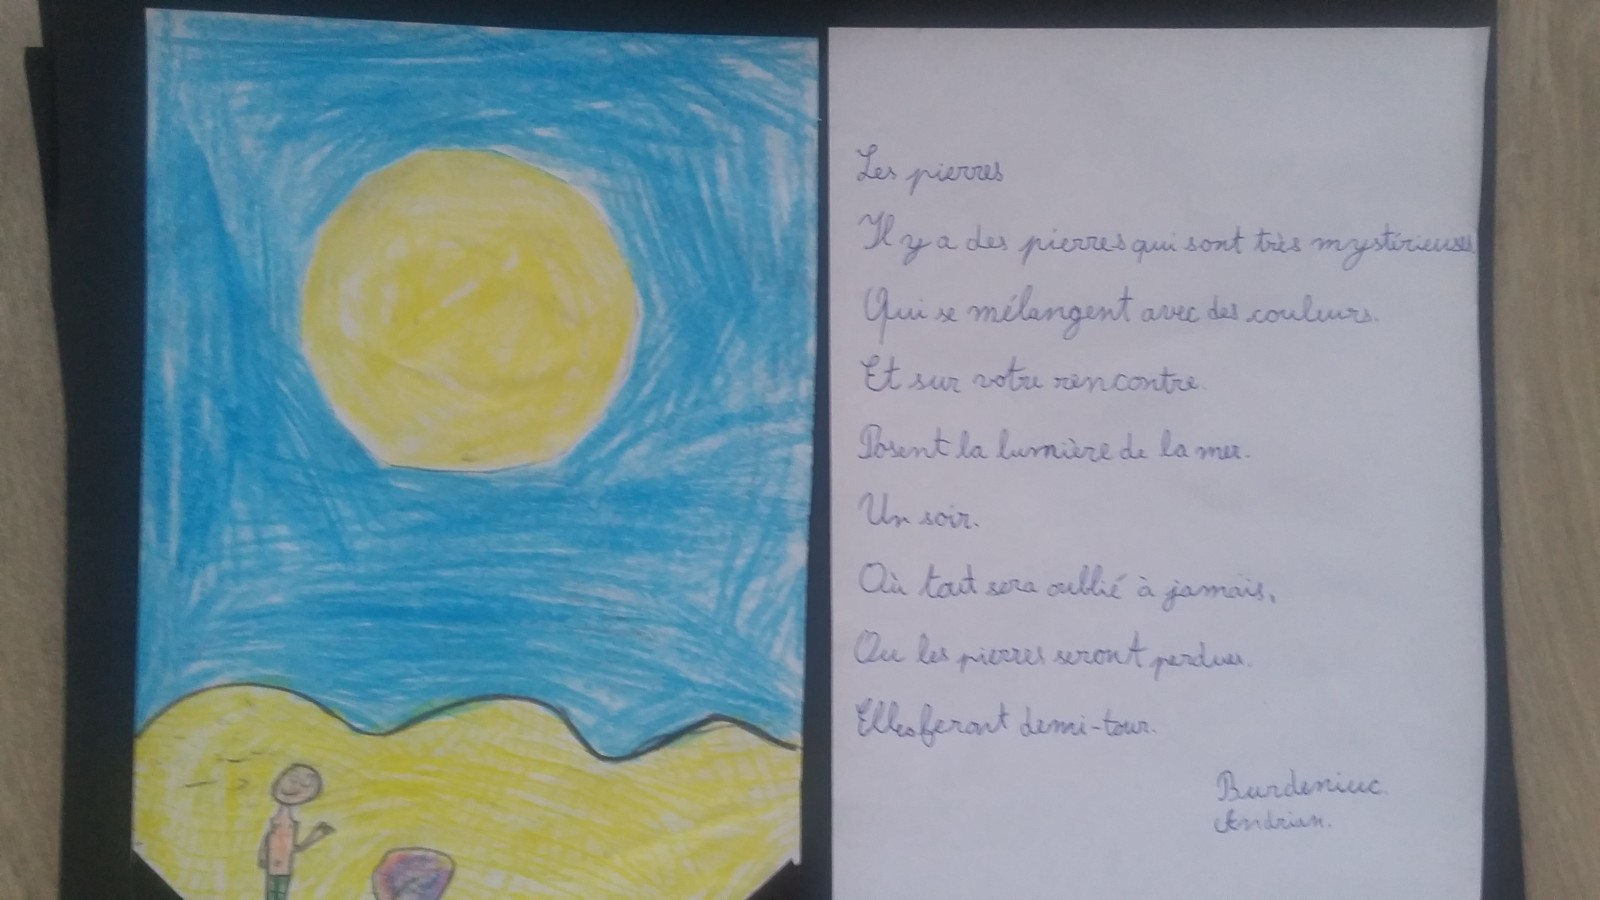 Les pierres
Il y a des pierres qui sont très mystérieuses
Qui se mélangent avec des couleurs.
Et sur votre rencontre.
Posent la lumière de la mer.
Un soir.
Où tout sera oublié à jamais,
Ou les pierres seront perdues.
Elles feront demi-tour.
Burdeniuc.
Andrian.